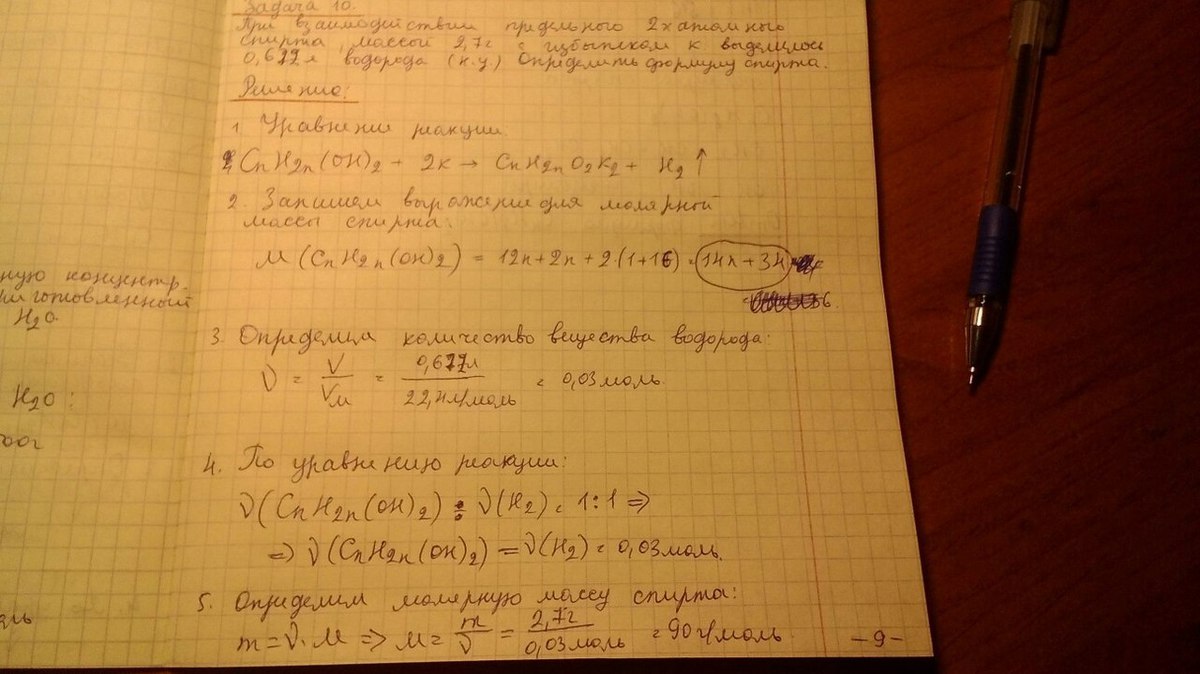 Задача 10.
При взаимодействии предельного 2хатомного
спирта, массой 2,7г с избытком К выделилось
0,672л водорода (н.у.) Определить формулу спирта.
Решение:
1. Уравнение реакции:
CnH2n(OH)2 + 2K → CnH2nO2K2 + H2↑
2. Запишем выражение для молярной
массы спирта:
M(CnH2n(OH)2) = 12n+2n+2·(1+16) = 14n+34
3. Определим количество вещества водорода:
ν = V/Vм = 0,672л/22,4л/моль = 0,03моль.
4. По уравнению реакции:
ν(CnH2n(OH)2) : ν(H2) = 1:1 ⇒
⇒ ν(CnH2n(OH)2) = ν(H2) = 0,03моль.
5. Определим молярную массу спирта:
m = ν·M ⇒ M = m/ν = 2,7г/0,03моль = 90г/моль.
-9-
ную концентр.
приготовленный
H2O.
H2O: